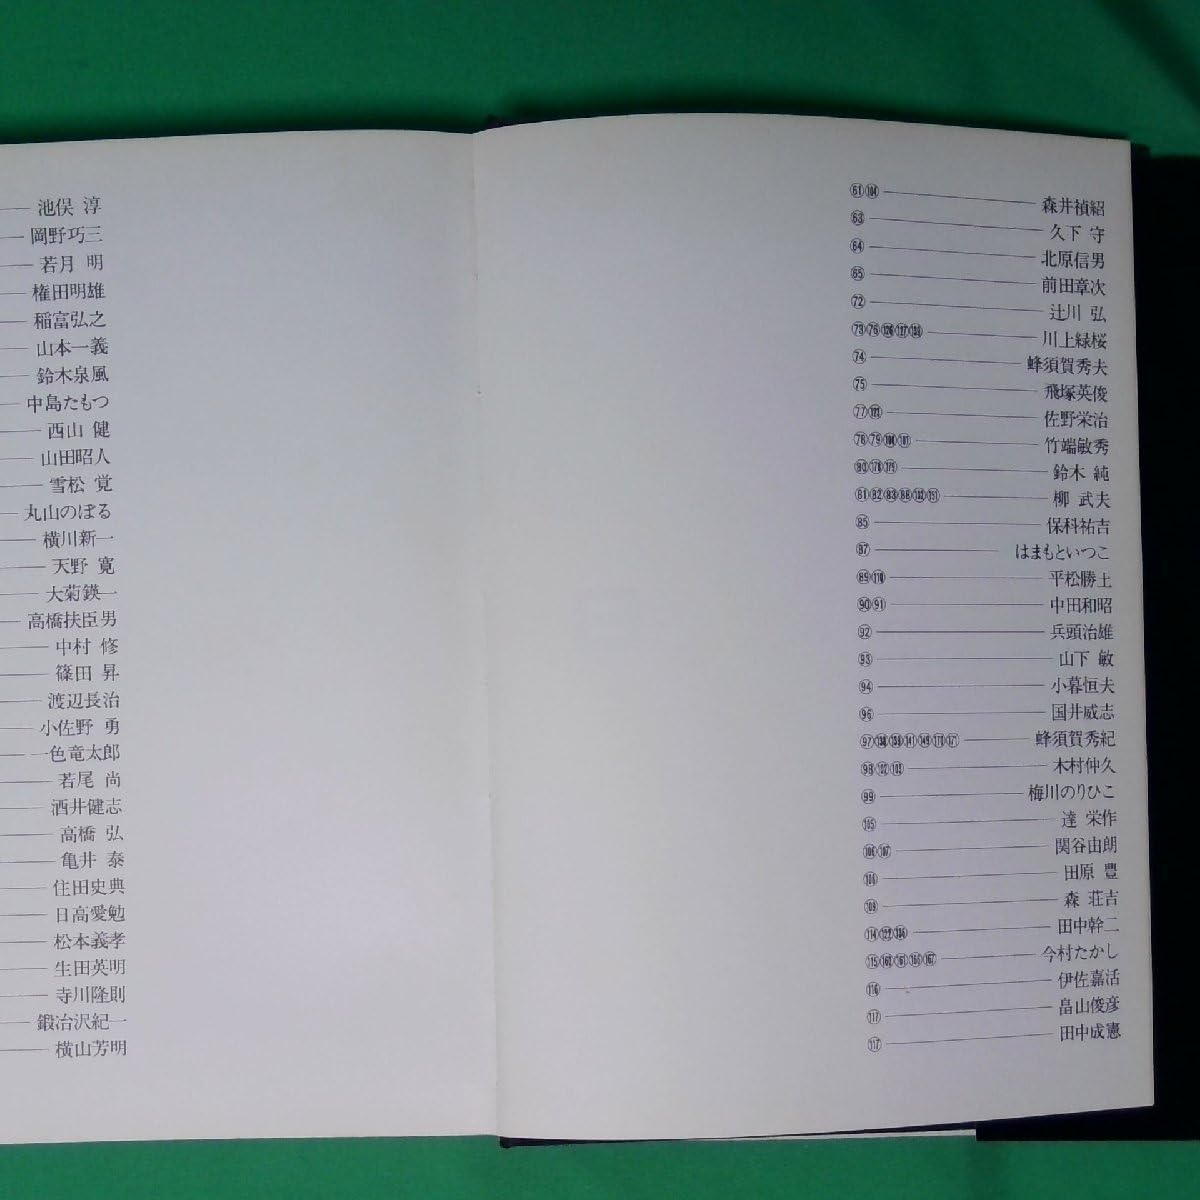 池俣 淳
岡野巧三
若月 明
権田明雄
稲富弘之
山本一義
鈴木泉風
中島たもつ
西山 健
山田昭人
雪松 覚
丸山のぼる
横川新一
天野 寛
大菊鍈一
高橋扶臣男
中村 修
篠田 昇
渡辺長治
小佐野 勇
一色竜太郎
若尾 尚
酒井健志
高橋 弘
亀井 泰
住田史典
日高愛勉
松本義孝
生田英明
寺川隆則
鍛冶沢紀一
横山芳明
61 104 森井禎紹
63 久下 守
64 北原信男
65 前田章次
72 辻川 弘
川上緑桜
74 蜂須賀秀夫
75 飛塚英俊
77 佐野栄治
78 79 竹端敏秀
鈴木 純
柳 武夫
85 保科祐吉
87 はまもといつこ
89 110 平松勝土
90 91 中田和昭
92 兵頭治雄
93 山下 敏
94 小暮恒夫
96 国井威志
97 蜂須賀秀紀
98 木村仲久
99 梅川のりひこ
105 達 栄作
106 107 関谷由朗
田原 豊
109 森 荘吉
114 122 田中幹二
115 今村たかし
116 伊佐嘉活
117 畠山俊彦
117 田中成憲